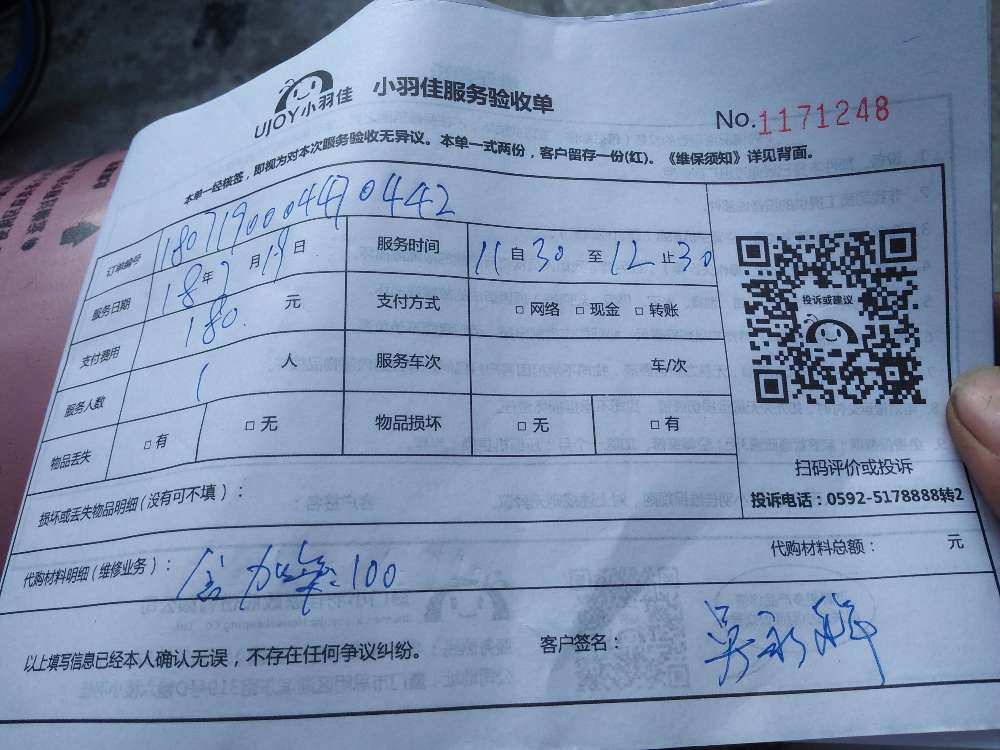 UJOY小羽佳 小羽佳服务验收单
No.1171248
本单一经核签，即视为对本次服务验收无异议。本单一式两份，客户留存一份(红)。《维保须知》详见背面。
订单编号 1807190004470442
服务日期 18年7月19日 服务时间 11自30至12止30
支付费用 180. 元 支付方式 □网络 □现金 □转账
服务人数 1 人 服务车次 车/次
物品丢失 □有 □无 物品损坏 □无 □有
投诉或建议
扫码评价或投诉
投诉电话：0592-5178888转2
损坏或丢失物品明细(没有可不填)：
代购材料明细(维修业务)： 含加氟100 代购材料总额： 元
以上填写信息已经本人确认无误，不存在任何争议纠纷。 客户签名：